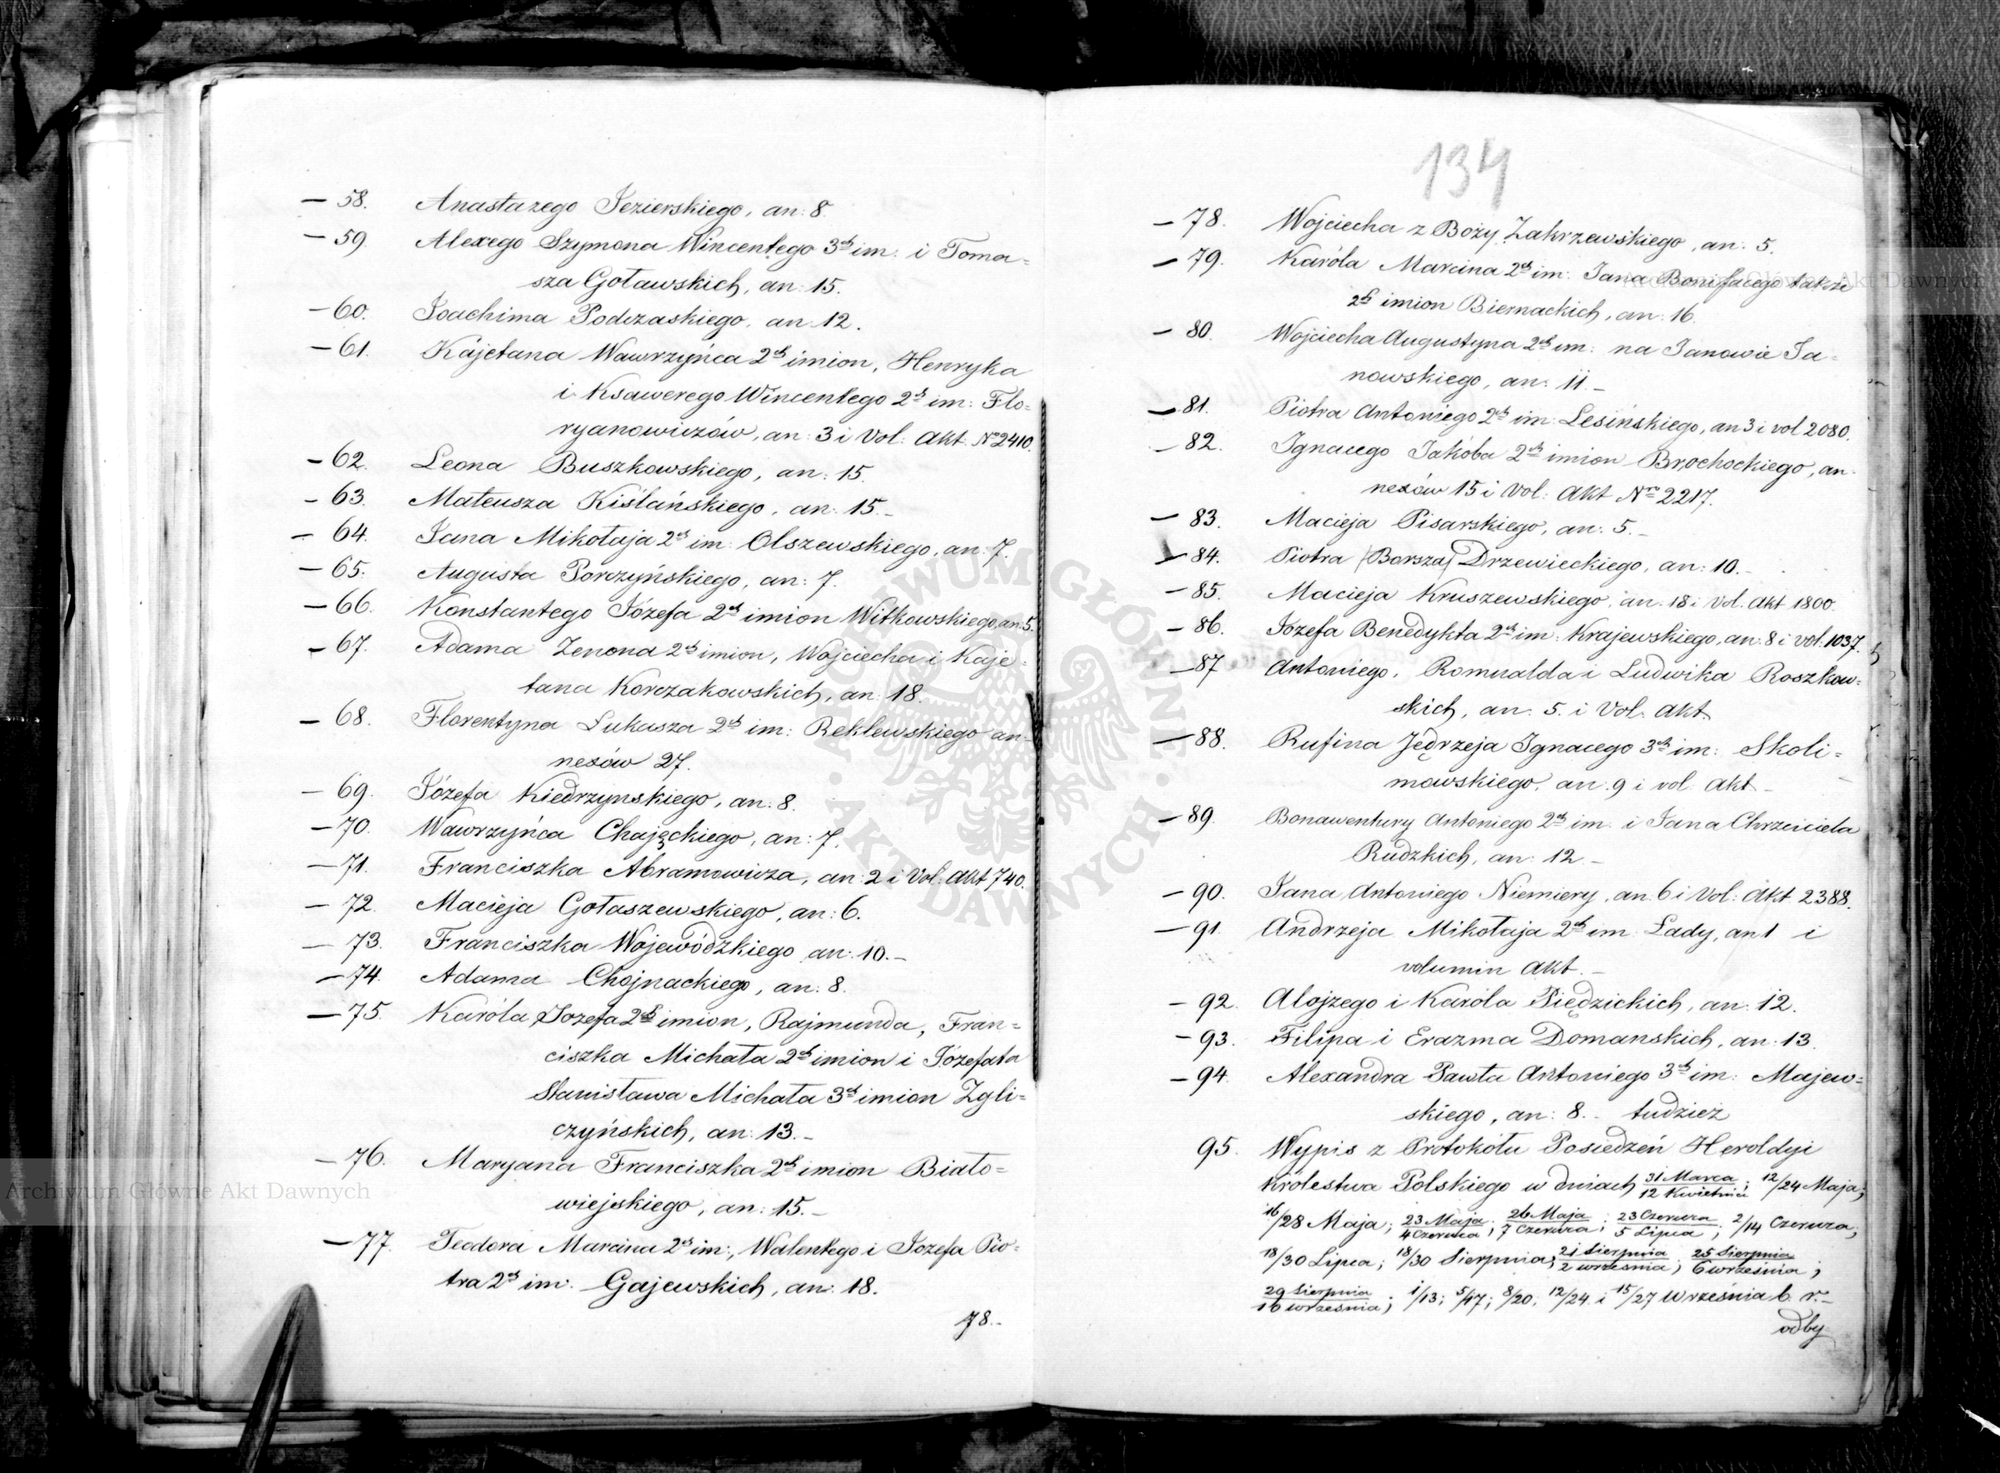 — 58. Anastazego Jezierskiego, an: 8
— 59. Alexego Szymona Wincentego 3ch im: i Toma=
sza Goławskich, an: 15.
— 60. Joachima Podczaskiego, an: 12.
— 61. Kajetana Wawrzyńca 2ch imion, Henryka
i Ksawerego Wincentego 2ch im: Flo=
ryanowiczów, an: 3 i Vol: Akt No 2410.
— 62. Leona Buszkowskiego, an: 15.
— 63. Mateusza Kiślańskiego, an: 15.—
— 64. Jana Mikołaja 2ch im: Olszewskiego, an: 7.
— 65. Augusta Porczyńskiego, an: 7.
— 66. Konstantego Józefa 2ch imion Witkowskiego, an: 5.
— 67. Adama Zenona 2ch imion, Wojciecha i Kaje=
tana Korczakowskich, an: 18.
— 68. Florentyna Łukasza 2ch im: Reklewskiego an=
nexów 27.
— 69. Józefa Kiedrzynskiego, an: 8.
— 70. Wawrzyńca Chajęckiego, an: 7.
— 71. Franciszka Abramowicza, an: 2 i Vol: Akt 740.
— 72. Macieja Gołaszewskiego, an: 6.
— 73. Franciszka Wojewódzkiego an: 10.—
— 74. Adama Chojnackiego, an: 8.
— 75. Karóla Jozefa 2ch imion, Rajmunda, Fran=
ciszka Michała 2ch imion i Józefata
Stanisława Michała 3ch imion Zgli=
czyńskich, an: 13.—
— 76. Maryana Franciszka 2ch imion Biało=
wiejskiego, an: 15.—
— 77. Teodora Marcina 2ch im:, Walentego i Jozefa Pio=
tra 2ch im: Gajewskich, an: 18.
78.—
134
— 78. Wojciecha z Boży Zakrzewskiego, an: 5.
— 79. Karóla Marcina 2ch im: Jana Bonifacego także
2ch imion Biernackich, an: 16.
— 80. Wojciecha Augustyna 2ch im: na Janowie Ja=
nowskiego, an: 11.—
— 81. Piotra Antoniego 2ch im: Lesińskiego, an 3 i vol 2080.
— 82. Ignacego Jakóba 2ch imion Brochockiego, an=
nexów 15 i Vol: Akt Nro 2217.
— 83. Macieja Pisarskiego, an: 5.—
— 84. Piotra (Barsza) Drzewieckiego, an: 10.—
— 85. Macieja Kruszewskiego, an: 18 i Vol. Akt 1800.
— 86. Józefa Benedykta 2ch im: Krajewskiego, an: 8 i vol. 1037.
— 87 Antoniego, Romualda i Ludwika Roszkow=
skich, an: 5. i Vol. Akt.
— 88. Rufina Jędrzeja Ignacego 3ch im: Skoli=
mowskiego, an: 9 i vol. Akt.—
— 89. Bonawentury Antoniego 2ch im: i Jana Chrzciciela
Rudzkich, an: 12.—
— 90. Jana Antoniego Niemiery, an. 6 i Vol: Akt 2388.
— 91. Andrzeja Mikołaja 2ch im Lady, an 1 i
volumin Akt.—
— 92. Alojzego i Karóla Piędzickich, an: 12.
— 93. Filipa i Erazma Domanskich, an: 13.
— 94. Alexandra Pawła Antoniego 3ch im: Majew=
skiego, an: 8.— tudzież
95. Wypis z Protokółu Posiedzeń Heroldyi
Królestwa Polskiego w dniach 31 Marca/12 Kwietnia; 12/24 Maja;
16/28 Maja; 23 Maja/4 Czerwca; 26 Maja/7 Czerwca; 23 Czerwca/5 Lipca; 2/14 Czerwca;
18/30 Lipca; 18/30 Sierpnia; 21 Sierpnia/2 września; 25 Sierpnia/6 września;
29 Sierpnia/10 września; 1/13; 5/17; 8/20; 12/24 i 15/27 Września b. r.—
odby
Archiwum Główne Akt Dawnych
Archiwum Główne Akt Dawnych
ARCHIWUM GŁÓWNE · AKT DAWNYCH ·